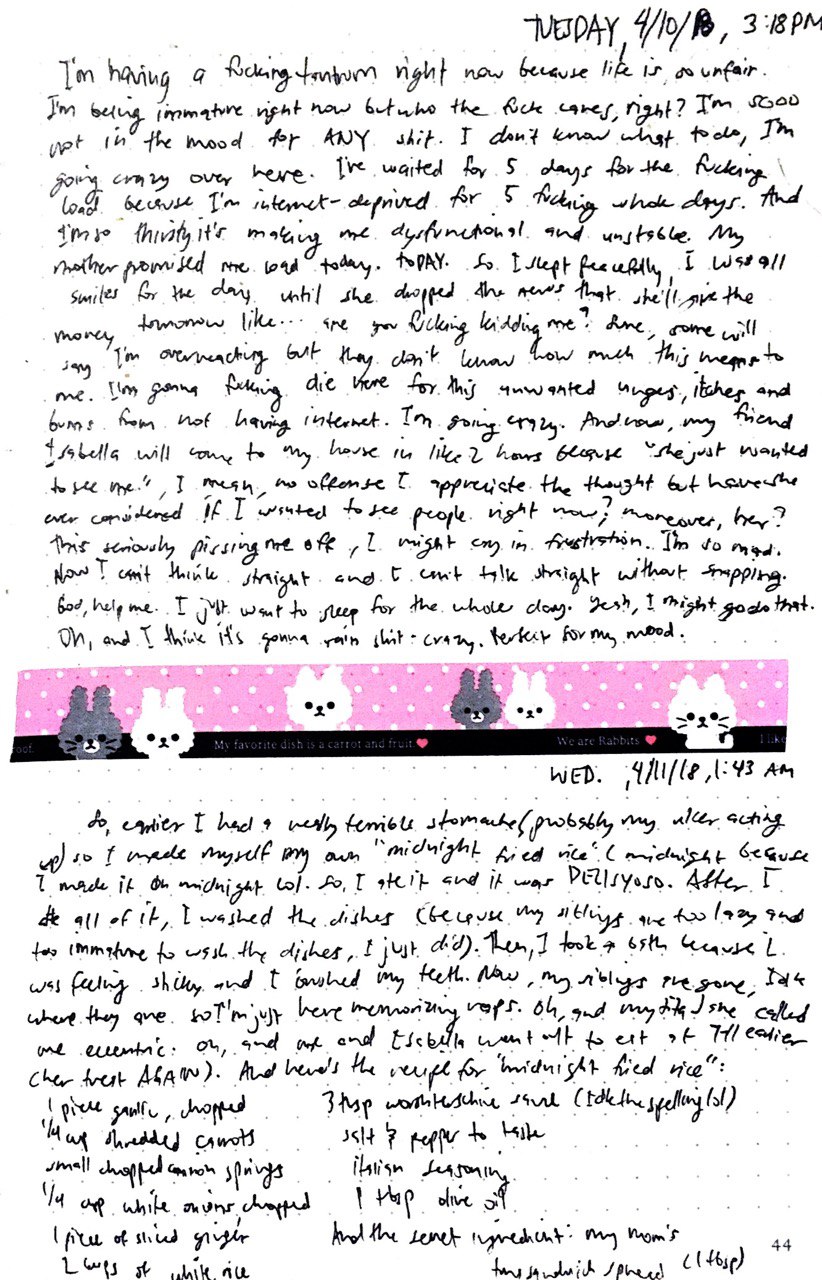 TUESDAY, 4/10/18, 3:18PM
I'm having a fucking tantrum right now because life is so unfair.
I'm being immature right now but who the fuck cares, right? I'm sooo
not in the mood for ANY shit. I don't know what to do, I'm
going crazy over here. I've waited for 5 days for the fucking
load because I'm internet-deprived for 5 fucking whole days. And
I'm so thirsty it's making me dysfunctional and unstable. My
mother promised me load today. toDAY. So I slept peacefully, I was all
smiles for the day until she dropped the news that she'll give the
money tomorrow like... are you fucking kidding me? Sure, some will
say I'm overreacting but they don't know how much this means to
me. I'm gonna fucking die here for this unwanted urges, itches and
burns from not having internet. I'm going crazy. And now, my friend
Isabella will come to my house in like 2 hours because "she just wanted
to see me.", I mean, no offense I appreciate the thought but have she
ever considered if I wanted to see people right now? moreover, her?
This seriously pissing me off, I might cry in frustration. I'm so mad.
Now I can't think straight and I can't talk straight without snapping.
God, help me. I just want to sleep for the whole day. Yeah, I might go do that.
Oh, and I think it's gonna rain shit-crazy. Perfect for my mood.
oof. My favorite dish is a carrot and fruit. We are Rabbits I like
WED. , 4/11/18, 1:43 AM
So, earlier I had a really terrible stomache (probably my ulcer acting
up) so I made myself my own "midnight fried rice" (midnight because
I made it on midnight lol. So, I ate it and it was DELISYOSO. After I
ate all of it, I washed the dishes (because my siblings are too lazy and
too immature to wash the dishes, I just did). Then, I took a bath because I
was feeling sticky and I brushed my teeth. Now, my siblings are gone, Idk
where they are so I'm just here memorizing raps. Oh, and my tita she called
me eccentric. Oh, and me and Isabella went out to eat at 7-11 earlier
(her treat AGAIN). And here's the recipe for "midnight fried rice":
1 piece garlic, chopped 3 tbsp worshterschire sauce (Idk the spelling lol)
1/4 cup shredded carrots salt & pepper to taste
small chopped onion springs italian seasoning
1/4 cup white onions chopped 1 tbsp olive oil
1 piece of sliced ginger And the secret ingredient: my mom's
2 cups of white rice tuna sandwich spread (1 tbsp)
44